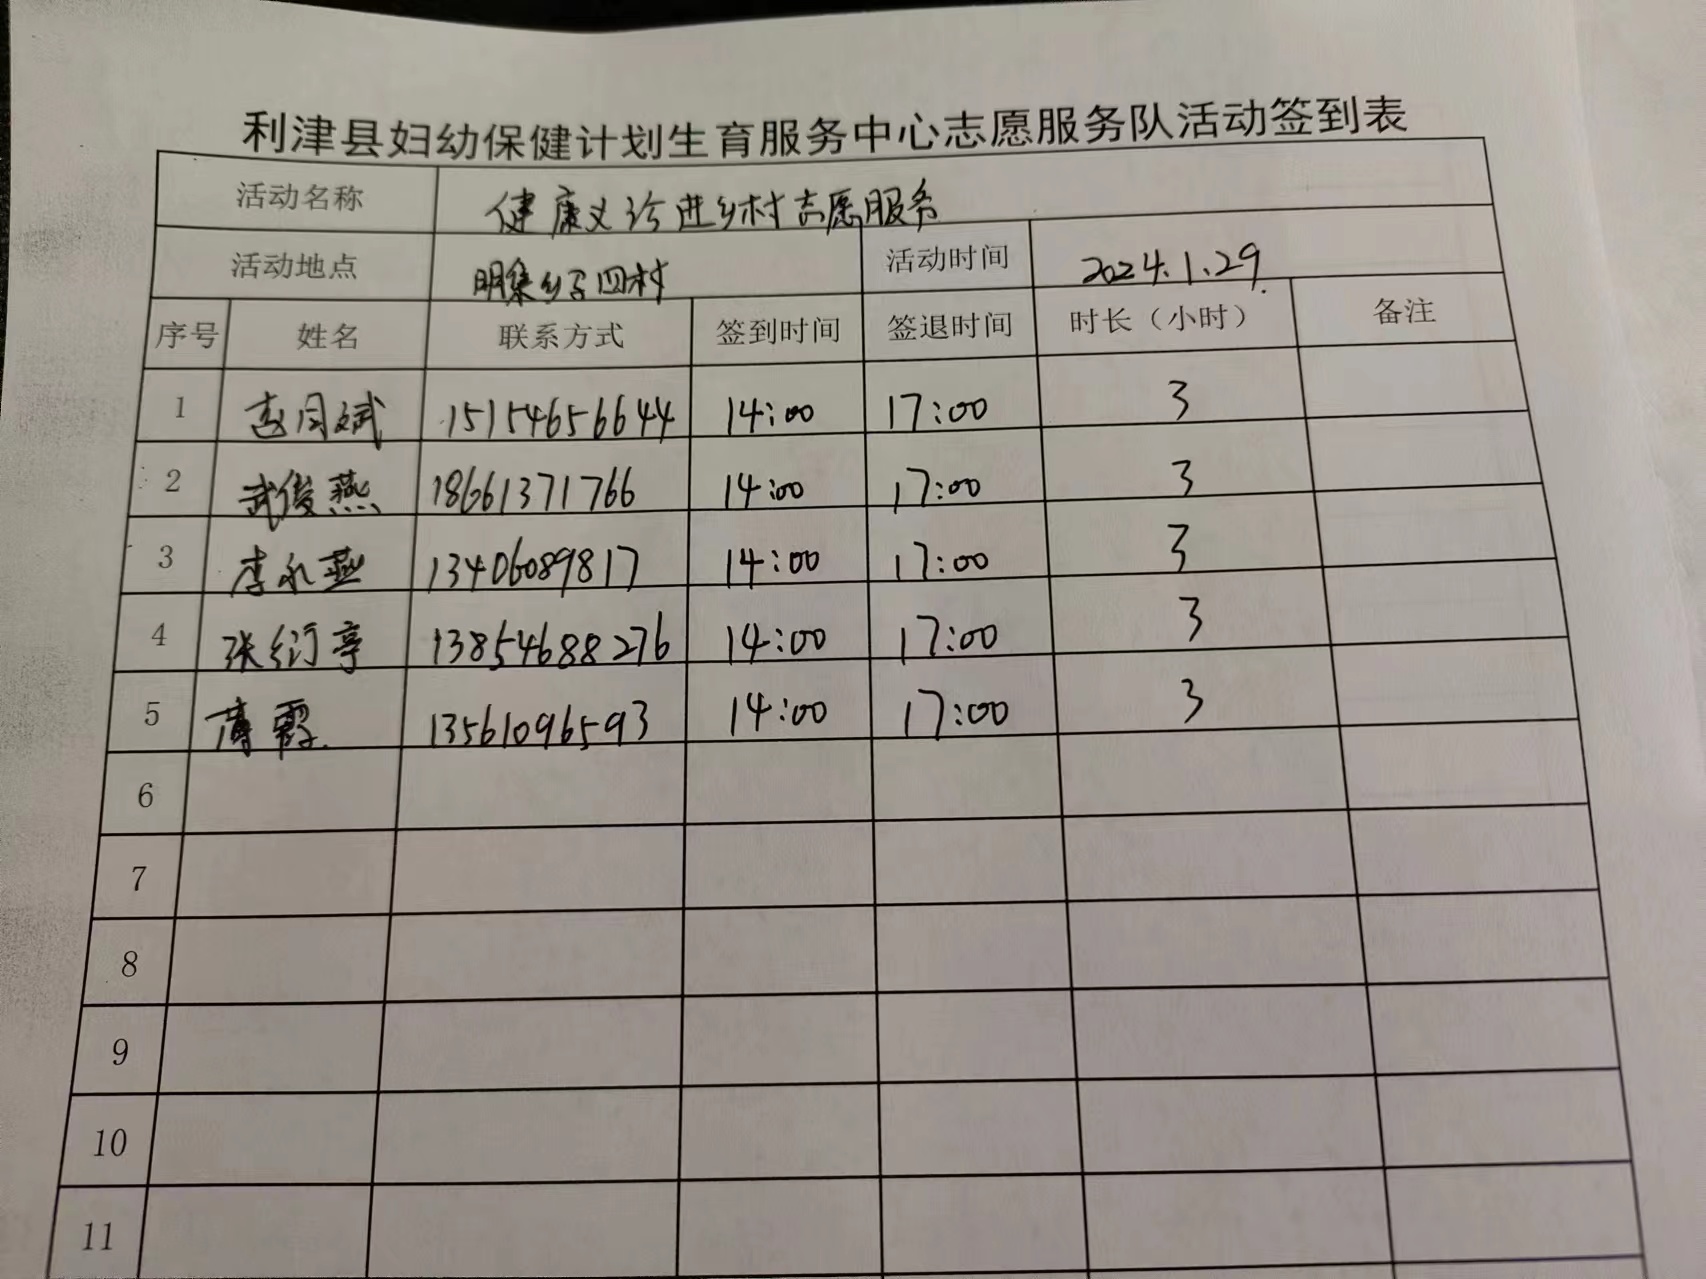 利津县妇幼保健计划生育服务中心志愿服务队活动签到表
活动名称 健康义诊进乡村志愿服务
活动地点 明集乡 四村 活动时间 2024.1.29.
序号 姓名 联系方式 签到时间 签退时间 时长（小时） 备注
1 斌 15154656644 14:00 17:00 3
2 武俊燕 18661371766 14:00 17:00 3
3 李永燕 13406089817 14:00 17:00 3
4 张衍亭 13854688276 14:00 17:00 3
5 薄霞 13561096593 14:00 17:00 3
6
7
8
9
10
11